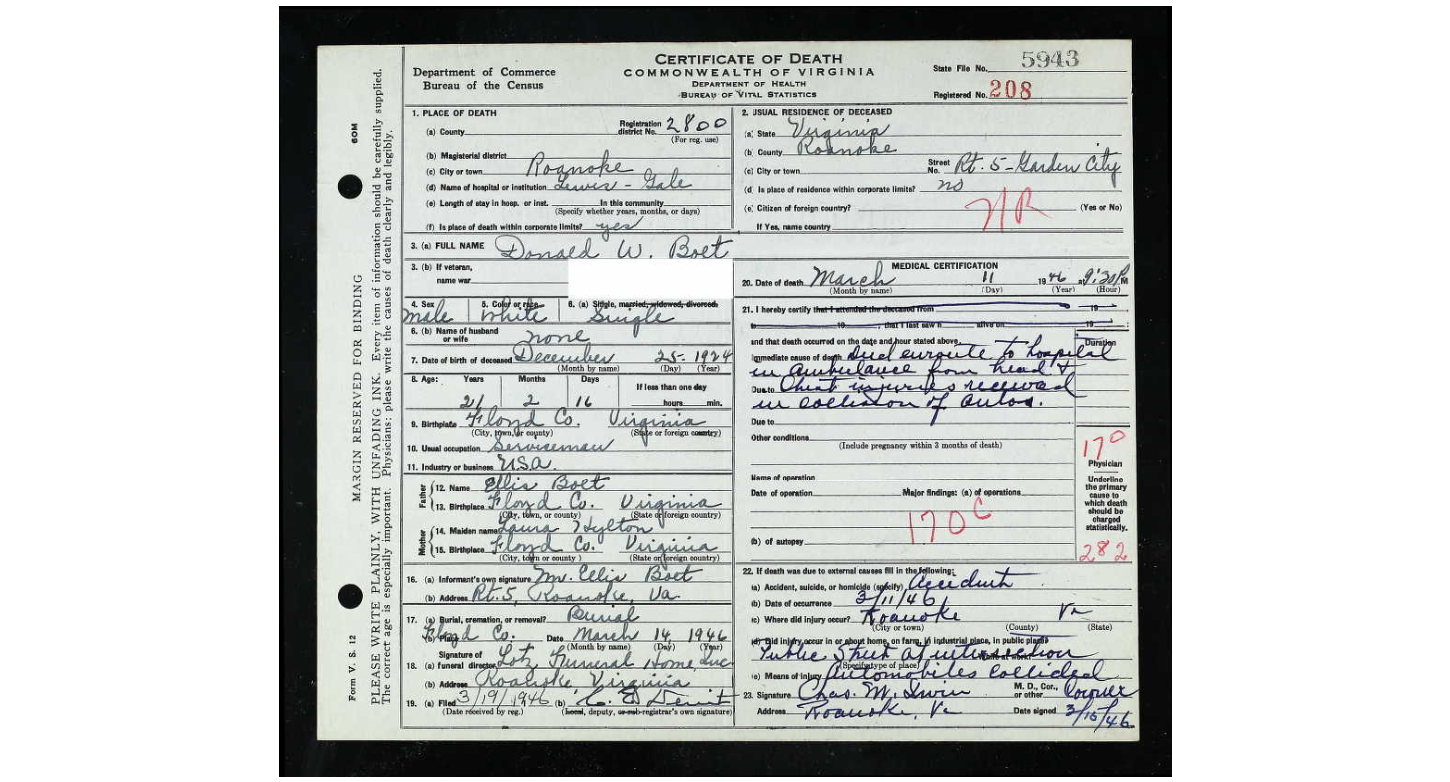 CERTIFICATE OF DEATH
COMMONWEALTH OF VIRGINIA
DEPARTMENT OF HEALTH
BUREAU OF VITAL STATISTICS
Department of Commerce
Bureau of the Census
State File No. 5943
Registered No. 208
MARGIN RESERVED FOR BINDING
60M
Form V. S. 12
PLEASE WRITE PLAINLY, WITH UNFADING INK. Every item of information should be carefully supplied.
The correct age is especially important. Physicians: please write the causes of death clearly and legibly.
1. PLACE OF DEATH
(a) County
Registration district No. 2800
(For reg. use)
(b) Magisterial district
(c) City or town Roanoke
(d) Name of hospital or institution Lewis - Gale
(e) Length of stay in hosp. or inst. In this community
(Specify whether years, months, or days)
(f) Is place of death within corporate limits? yes
2. USUAL RESIDENCE OF DECEASED
(a) State Virginia
(b) County Roanoke
(c) City or town Street No. Rt. 5 - Garden City
(d) Is place of residence within corporate limits? no
(e) Citizen of foreign country? (Yes or No)
NR
If Yes, name country
3. (a) FULL NAME Donald W. Boet
3. (b) If veteran,
name war
4. Sex male
5. Color or race White
6. (a) Single, married, widowed, divorced Single
6. (b) Name of husband or wife none
7. Date of birth of deceased December 25- 1924
(Month by name) (Day) (Year)
8. Age: Years Months Days If less than one day
21 2 16 hours min.
9. Birthplace Floyd Co. Virginia
(City, town, or county) (State or foreign country)
10. Usual occupation Serviceman
11. Industry or business U.S.A.
Father
12. Name Ellis Boet
13. Birthplace Floyd Co. Virginia
(City, town, or county) (State or foreign country)
Mother
14. Maiden name Laura Hylton
15. Birthplace Floyd Co. Virginia
(City, town or county) (State or foreign country)
16. (a) Informant's own signature Mr. Ellis Boet
(b) Address Rt. 5, Roanoke, Va
17. (a) Burial, cremation, or removal? Burial
(b) Place Floyd Co. Date March 14, 1946
(Month by name) (Day) (Year)
Signature of
18. (a) funeral director Lotz Funeral Home, Inc
(b) Address Roanoke Virginia
19. (a) Filed 3/19/1946 (b)
(Date received by reg.) (Local, deputy, or sub-registrar's own signature)
MEDICAL CERTIFICATION
20. Date of death March 11 1946 at 9:30 P M
(Month by name) (Day) (Year) (Hour)
21. I hereby certify that I attended the deceased from 19
to 19 , that I last saw h alive on 19
and that death occurred on the date and hour stated above. Duration
Immediate cause of death Died enroute to hospital
in ambulance from head &
Due to Chest injuries received
in collision of autos.
Due to
Other conditions
(Include pregnancy within 3 months of death)
Name of operation
Date of operation Major findings: (a) of operations
170 C
(b) of autopsy
170
Physician
Underline
the primary
cause to
which death
should be
charged
statistically.
282
22. If death was due to external causes fill in the following:
(a) Accident, suicide, or homicide (specify) Accident
(b) Date of occurrence 3/11/46
(c) Where did injury occur? Roanoke Va
(City or town) (County) (State)
(d) Did injury occur in or about home, on farm, in industrial place, in public place
Public Street at intersection
(Specify type of place)
(e) Means of injury Automobiles collided
23. Signature Chas. M. Irvin M. D., Cor., or other Coroner
Address Roanoke, Va Date signed 3/15/46